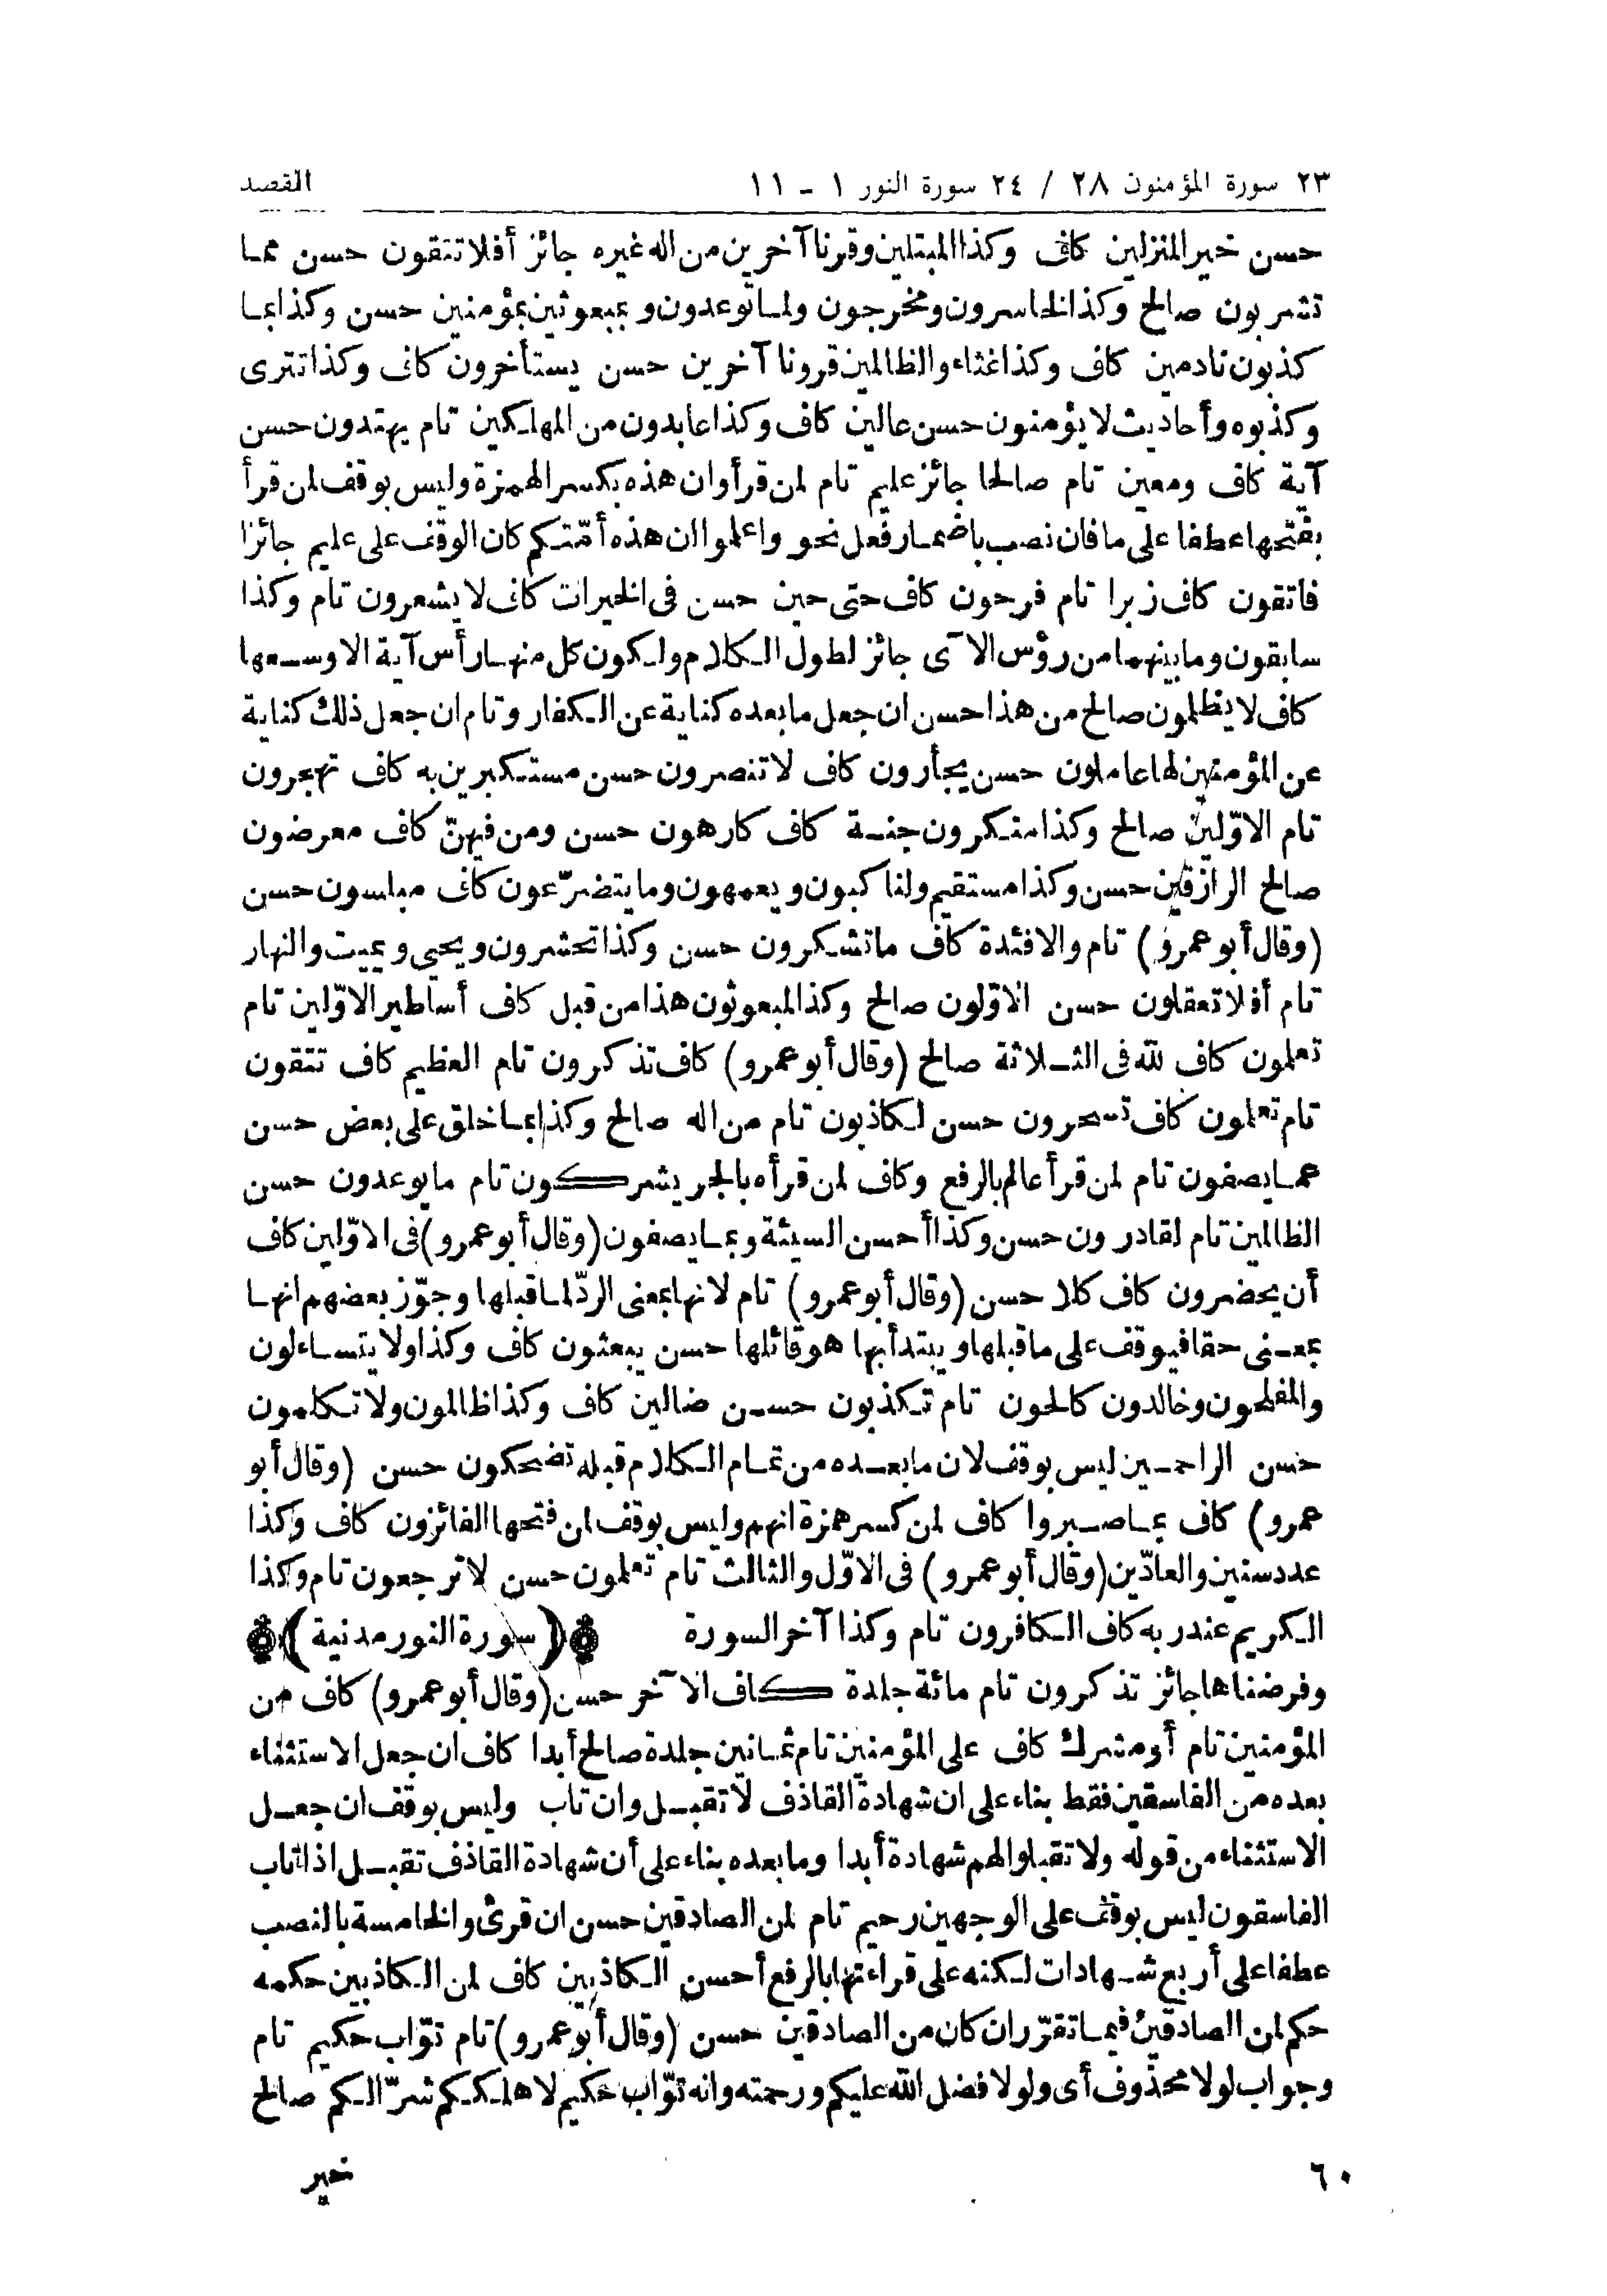 ٢٣ سورة المؤمنون ٢٨ / ٢٤ سورة النور ١ - ١١ القصد
حسن خير المنزلين كاف وكذا المبتلين وقرنا آخرين من اله غيره جائز أفلا تتقون حسن مما
تشربون صالح وكذا الخاسرون ومخرجون ولما توعدون وبمبعوثين بمؤمنين حسن وكذا بما
كذبون نادمين كاف وكذا غثاء والظالمين قرونا آخرين حسن يستأخرون كاف وكذا تترى
وكذبوه وأحاديث لا يؤمنون حسن عالين كاف وكذا عابدون من المهلكين تام يهتدون حسن
آية كاف ومعين تام صالحا جائز عليم تام لمن قرأ وان هذه بكسر الهمزة وليس بوقف لمن قرأ
بفتحها عطفا على ما فان نصب باضمار فعل نحو واعلموا ان هذه أمّتكم كان الوقف على عليم جائزا
فاتقون كاف زبرا تام فرحون كاف حتى حين حسن فى الخيرات كاف لا يشعرون تام وكذا
سابقون وما بينهما من رؤس الآى جائز لطول الكلام ولكون كل منها رأس آية الا وسعها
كاف لا يظلمون صالح من هذا حسن ان جعل ما بعده كناية عن الكفار وتام ان جعل ذلك كناية
عن المؤمنين لها عاملون حسن يجأرون كاف لا تنصرون حسن مستكبرين به كاف تهجرون
تام الاوّلين صالح وكذا منكرون جنة كاف كارهون حسن ومن فيهنّ كاف معرضون
صالح الرازقين حسن وكذا مستقيم ولناكبون ويعمهون وما يتضرّعون كاف مبلسون حسن
(وقال أبو عمرو) تام والافئدة كاف ما تشكرون حسن وكذا تحشرون ويحيى ويميت والنهار
تام أفلا تعقلون حسن الاوّلون صالح وكذا لمبعوثون هذا من قبل كاف أساطير الاوّلين تام
تعلمون كاف لله فى الثلاثة صالح (وقال أبو عمرو) كاف تذكرون تام العظيم كاف تتقون
تام تعلمون كاف تسحرون حسن لكاذبون تام من اله صالح وكذا بما خلق على بعض حسن
عما يصفون تام لمن قرأ عالم بالرفع وكاف لمن قرأه بالجر يشركون تام ما يوعدون حسن
الظالمين تام لقادرون حسن وكذا أحسن السيئة وبما يصفون (وقال أبو عمرو) فى الاوّلين كاف
أن يحضرون كاف كلا حسن (وقال أبو عمرو) تام لانها بمعنى الردّ لما قبلها وجوّز بعضهم انها
بمعنى حقا فيوقف على ما قبلها ويبتدأ بها هو قائلها حسن يبعثون كاف وكذا ولا يتساءلون
والمفلحون وخالدون كالحون تام تكذبون حسن ضالين كاف وكذا ظالمون ولا تكلمون
حسن الراحمين ليس بوقف لان ما بعده من تمام الكلام قبله تضحكون حسن (وقال أبو
عمرو) كاف بما صبروا كاف لمن كسر همزة انهم وليس بوقف ان فتحها الفائزون كاف وكذا
عدد سنين والعادّين (وقال أبو عمرو) فى الاوّل والثالث تام تعلمون حسن لا ترجعون تام وكذا
الكريم عند ربه كاف الكافرون تام وكذا آخر السورة (سورة النور مدنية)
وفرضناها جائز تذكرون تام مائة جلدة كاف الآخر حسن (وقال أبو عمرو) كاف من
المؤمنين تام أو مشرك كاف على المؤمنين تام ثمانين جلدة صالح أبدا كاف ان جعل الاستثناء
بعده من الفاسقين فقط بناء على ان شهادة القاذف لا تقبل وان تاب وليس بوقف ان جعل
الاستثناء من قوله ولا تقبلوا لهم شهادة أبدا وما بعده بناء على أن شهادة القاذف تقبل اذا تاب
الفاسقون ليس بوقف على الوجهين رحيم تام لمن الصادقين حسن ان قرئ والخامسة بالنصب
عطفا على أربع شهادات لكنه على قراءتها بالرفع أحسن الكاذبين كاف لمن الكاذبين حكمه
حكم لمن الصادقين فيما تقرّر ان كان من الصادقين حسن (وقال أبو عمرو) تام توّاب حكيم تام
وجواب لولا محذوف أى ولولا فضل الله عليكم ورحمته وانه توّاب حكيم لاهلككم شرّا لكم صالح
٦٠ خير